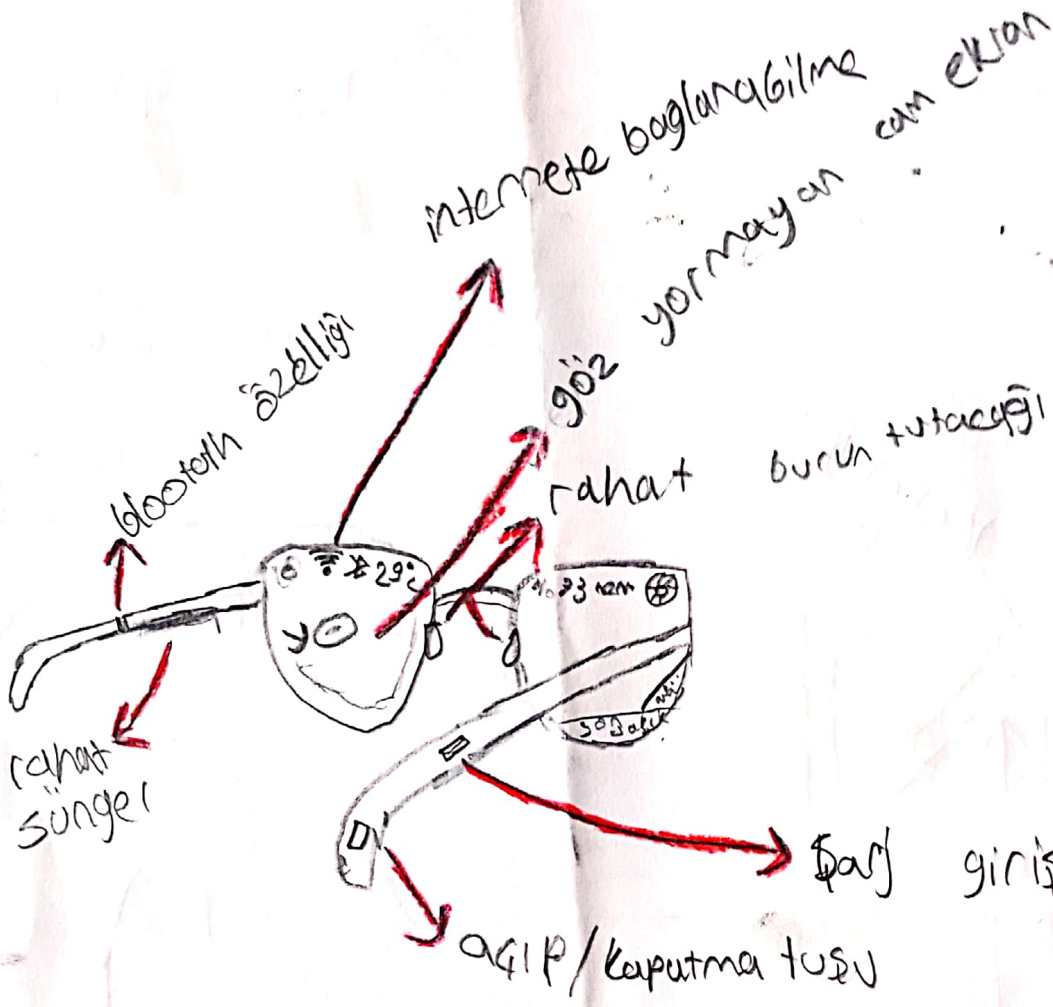 internete bağlanabilme
göz yormayan cam ekran
bloototh özelliği
rahat burun tutacağı
29°C
%33 nem
rahat
sünger
şarj giriş
açıp/kapatma tuşu